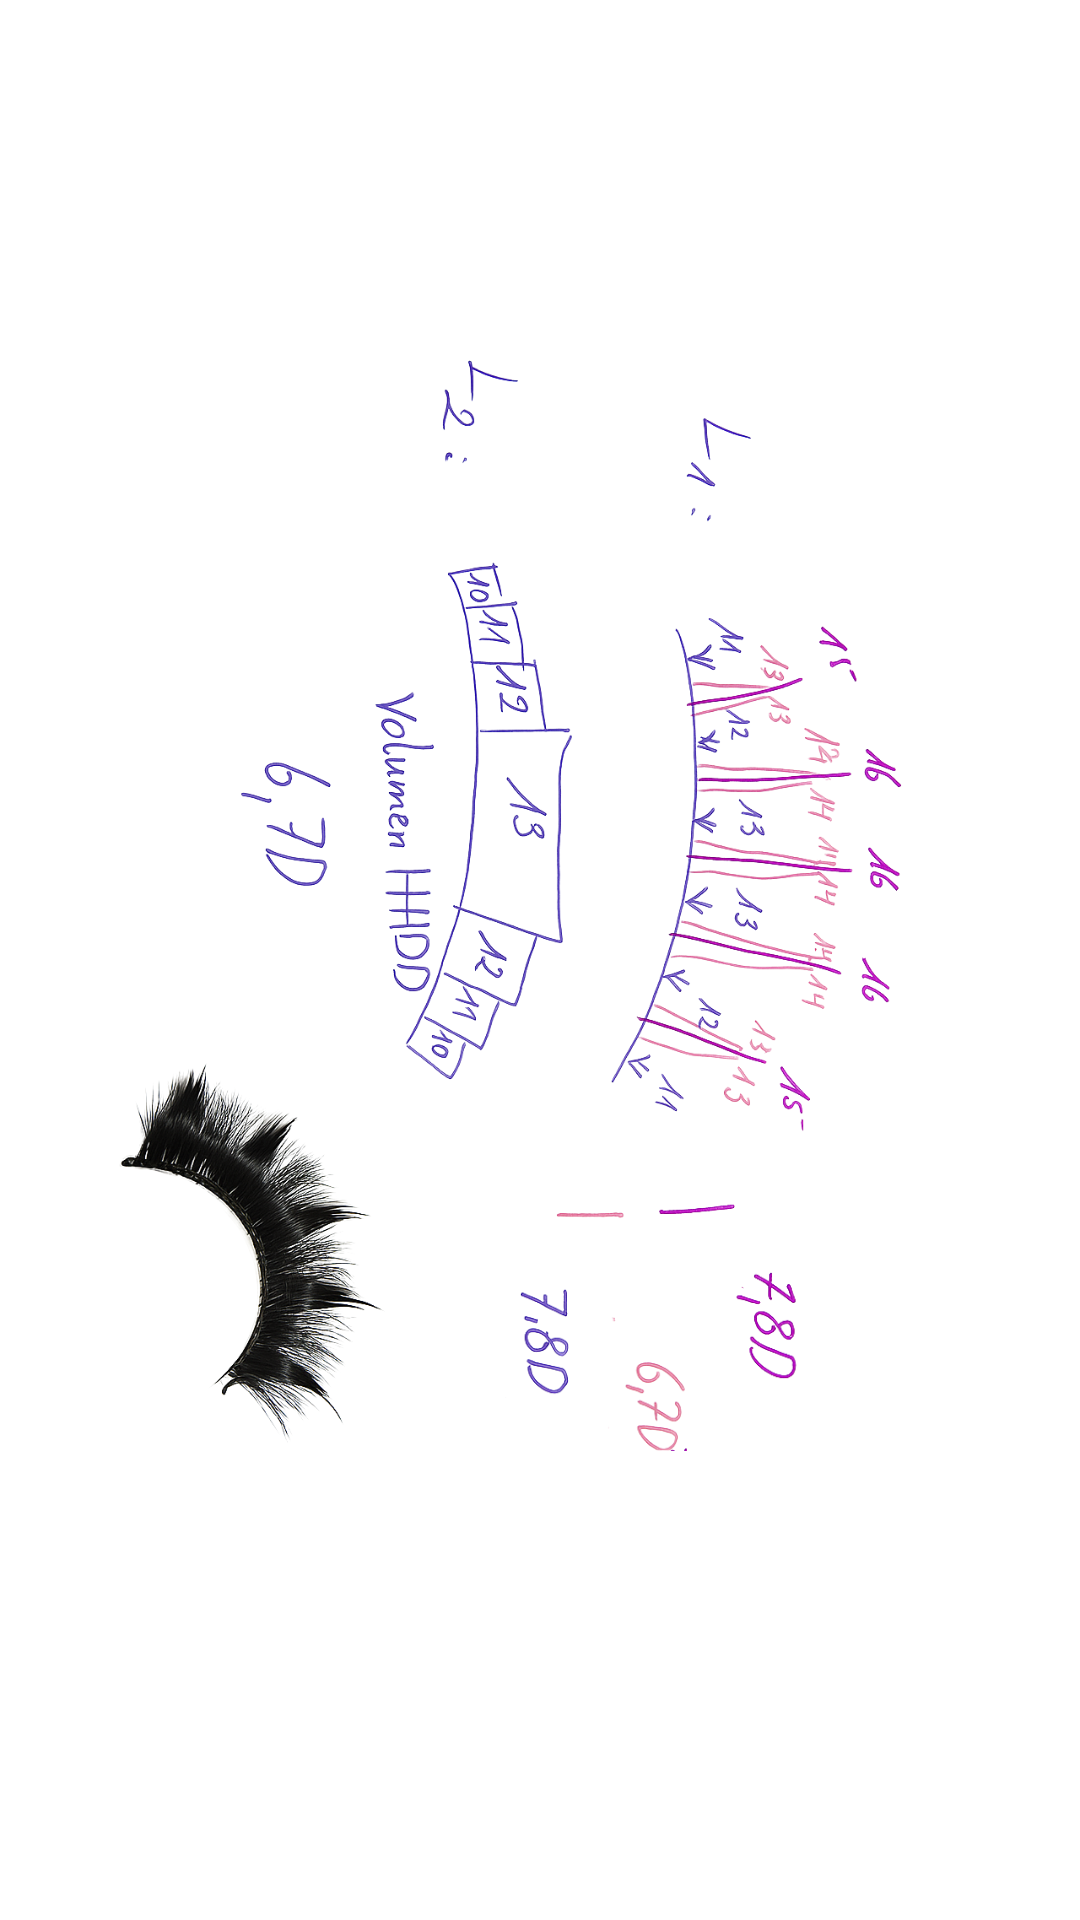 15 16 16 16 15
13 13 14 14 14 14 14 14 13 13
L1: 11 12 13 13 12 11
7,8D
6,7D
7,8D
L2: 10 11 12 13 12 11 10
Volumen HHDD
6,7D